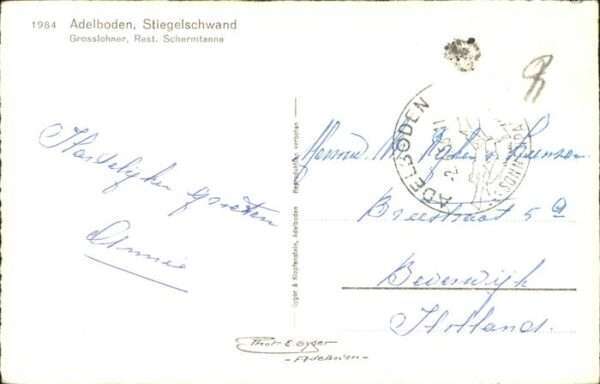 1984 Adelboden, Stiegelschwand
Grosslohner, Rest. Schermtanne
Hartelijke groeten
Annie
Gyger & Klopfenstein, Adelboden Reproduktion verboten
ADELBODEN
Breestraat 5a
Beverwijk
Holland.
Phot E Gyger
- Adelboden -